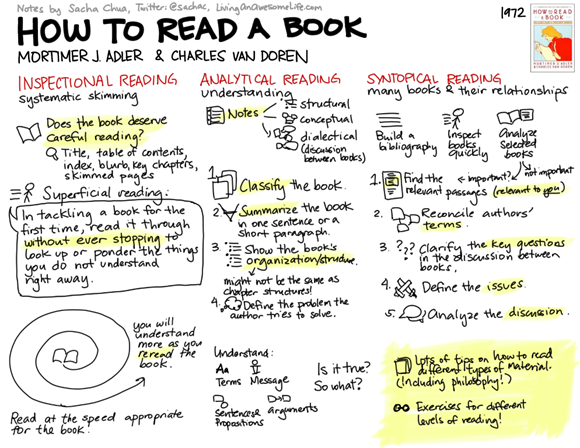 Notes by Sacha Chua, Twitter: @sachac, LivingAnAwesomeLife.com
HOW TO READ A BOOK
MORTIMER J. ADLER & CHARLES VAN DOREN
1972
HOW TO READ
A BOOK
INSPECTIONAL READING
systematic skimming
Does the book deserve
careful reading?
Title, table of contents,
index, blurb, key chapters,
skimmed pages
Superficial reading:
In tackling a book for the
first time, read it through
without ever stopping to
look up or ponder the things
you do not understand
right away.
you will
understand
more as you
reread the
book.
Read at the speed appropriate
for the book!
ANALYTICAL READING
understanding
Notes
structural
conceptual
dialectical
(discussion
between books)
1. Classify the book.
2. Summarize the book
in one sentence or a
short paragraph.
3. Show the book's
organization/structure.
might not be the same as
chapter structures!
4. Define the problem the
author tries to solve.
Understand:
Aa
Terms Message
Sentences & Propositions
arguments
Is it true?
So what?
SYNTOPICAL READING
many books & their relationships
Build a
bibliography
Inspect
books
quickly
Analyze
selected
books
1. Find the
relevant passages
important?
not important
(relevant to you)
2. Reconcile authors'
terms.
3. ??? Clarify the key questions
in the discussion between
books.
4. Define the issues.
5. Analyze the discussion.
Lots of tips on how to read
different types of material.
(Including philosophy!)
Exercises for different
levels of reading!